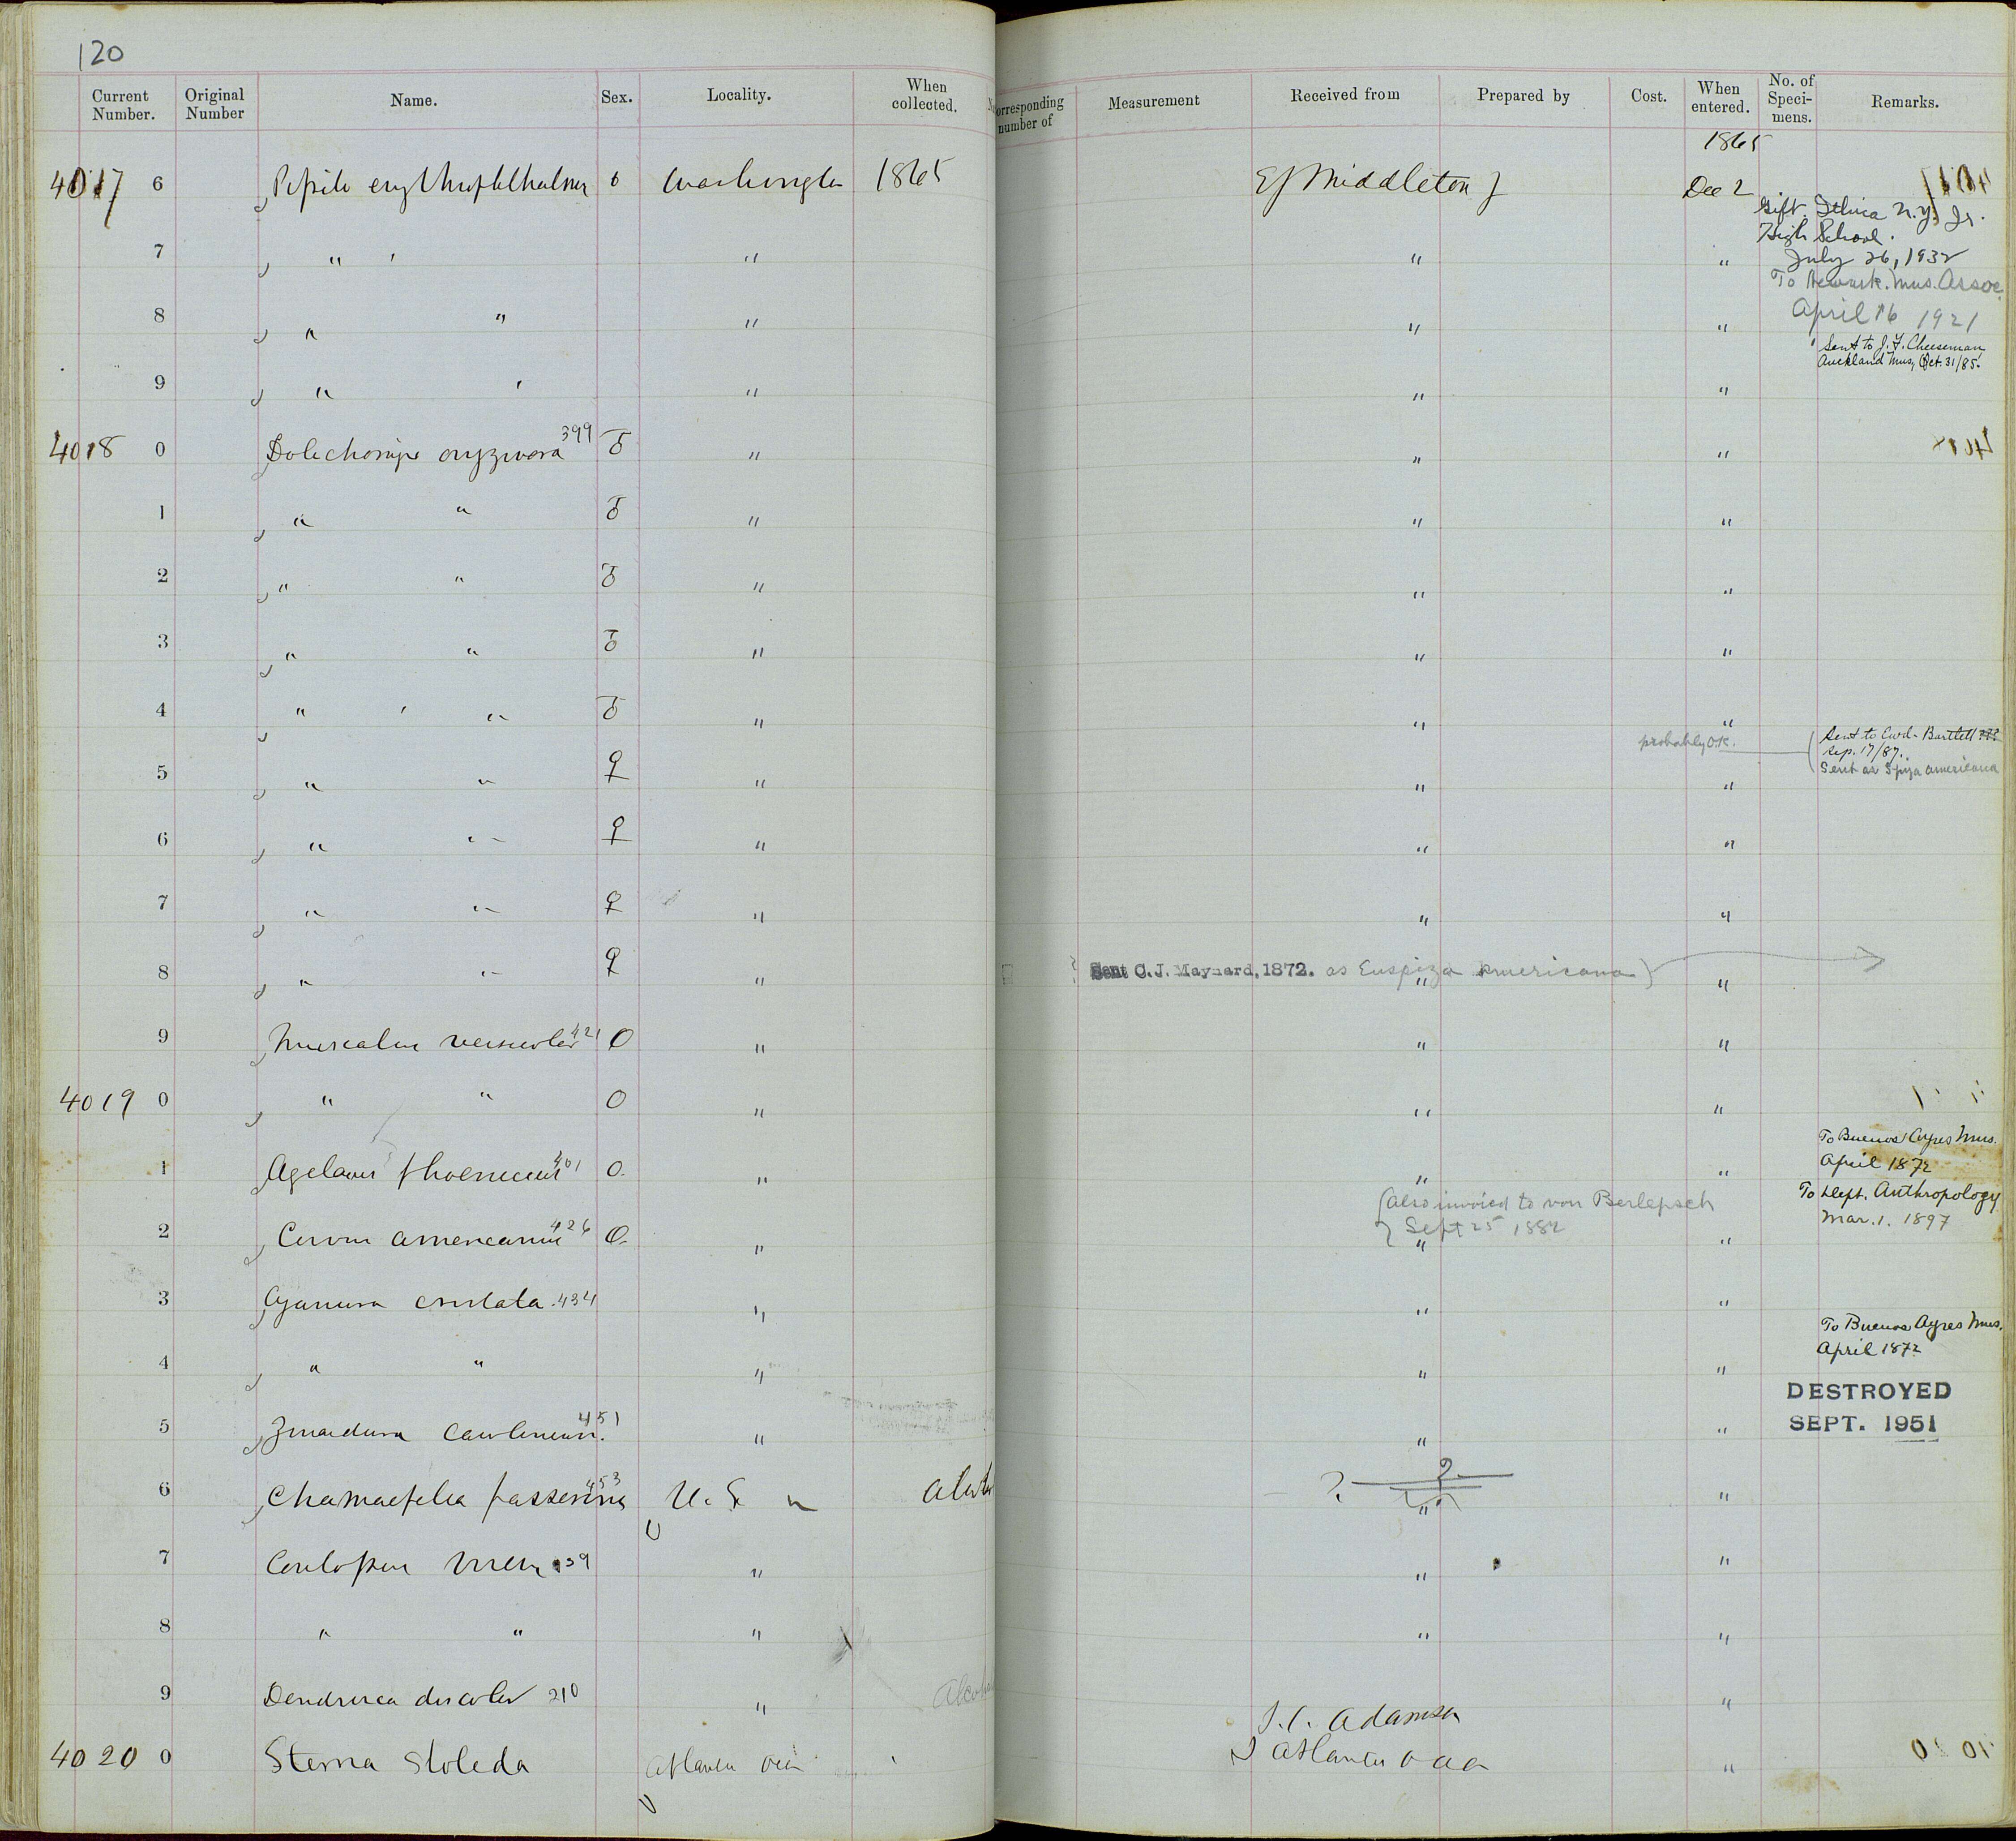 120
Current Number. Original Number Name. Sex. Locality. When collected. Corresponding number of Measurement Received from Prepared by Cost. When entered. No. of Speci- mens. Remarks.
1865
4017 6 Pipilo erythrophthalmus Washington 1865 Middleton Dec 2
Gift. Ithica N.Y. Jr.
High School.
7 " " " " July 26, 1932
To Newark Mus. Assoc.
8 " " " " " April 16 1921
Sent to J. F. Cheeseman
Auckland Mus, Oct. 31/85.
9 " " " "
4018 0 Dolichonyx oryzivora 399 " " "
1 " " " " "
2 " " " " "
3 " " " " "
4 " " " " "
probably O.K. Sent to Ewd. Bartlett ???
Sep. 17/87.
Sent as Spiza americana
5 " " ♀ " " "
6 " " ♀ " " "
7 " " ♀ " " "
8 " " ♀ " Sent C. J. Maynard, 1872. as Euspiza americana " "
9 421 O " " "
4019 0 " " O " " "
To Buenos Ayres Mus.
April 1872
1 Agelaius phoeniceus 401 O. " " "
(Also invoiced to von Berlepsch
Sept 25 1882
To Dept. Anthropology
Mar. 1. 1897
2 Corvus americanus 426 O. " " "
3 Cyanura cristata 434 " " "
To Buenos Ayres Mus.
April 1872
4 " " " " "
DESTROYED
SEPT. 1951
5 451 " " "
6 Chamaepelia passerina 453 U. S. ? ? " "
7 " " "
8 " " " " "
9 Dendroica discolor 210 " "
Adamson
4020 0 Sterna Atlantic "